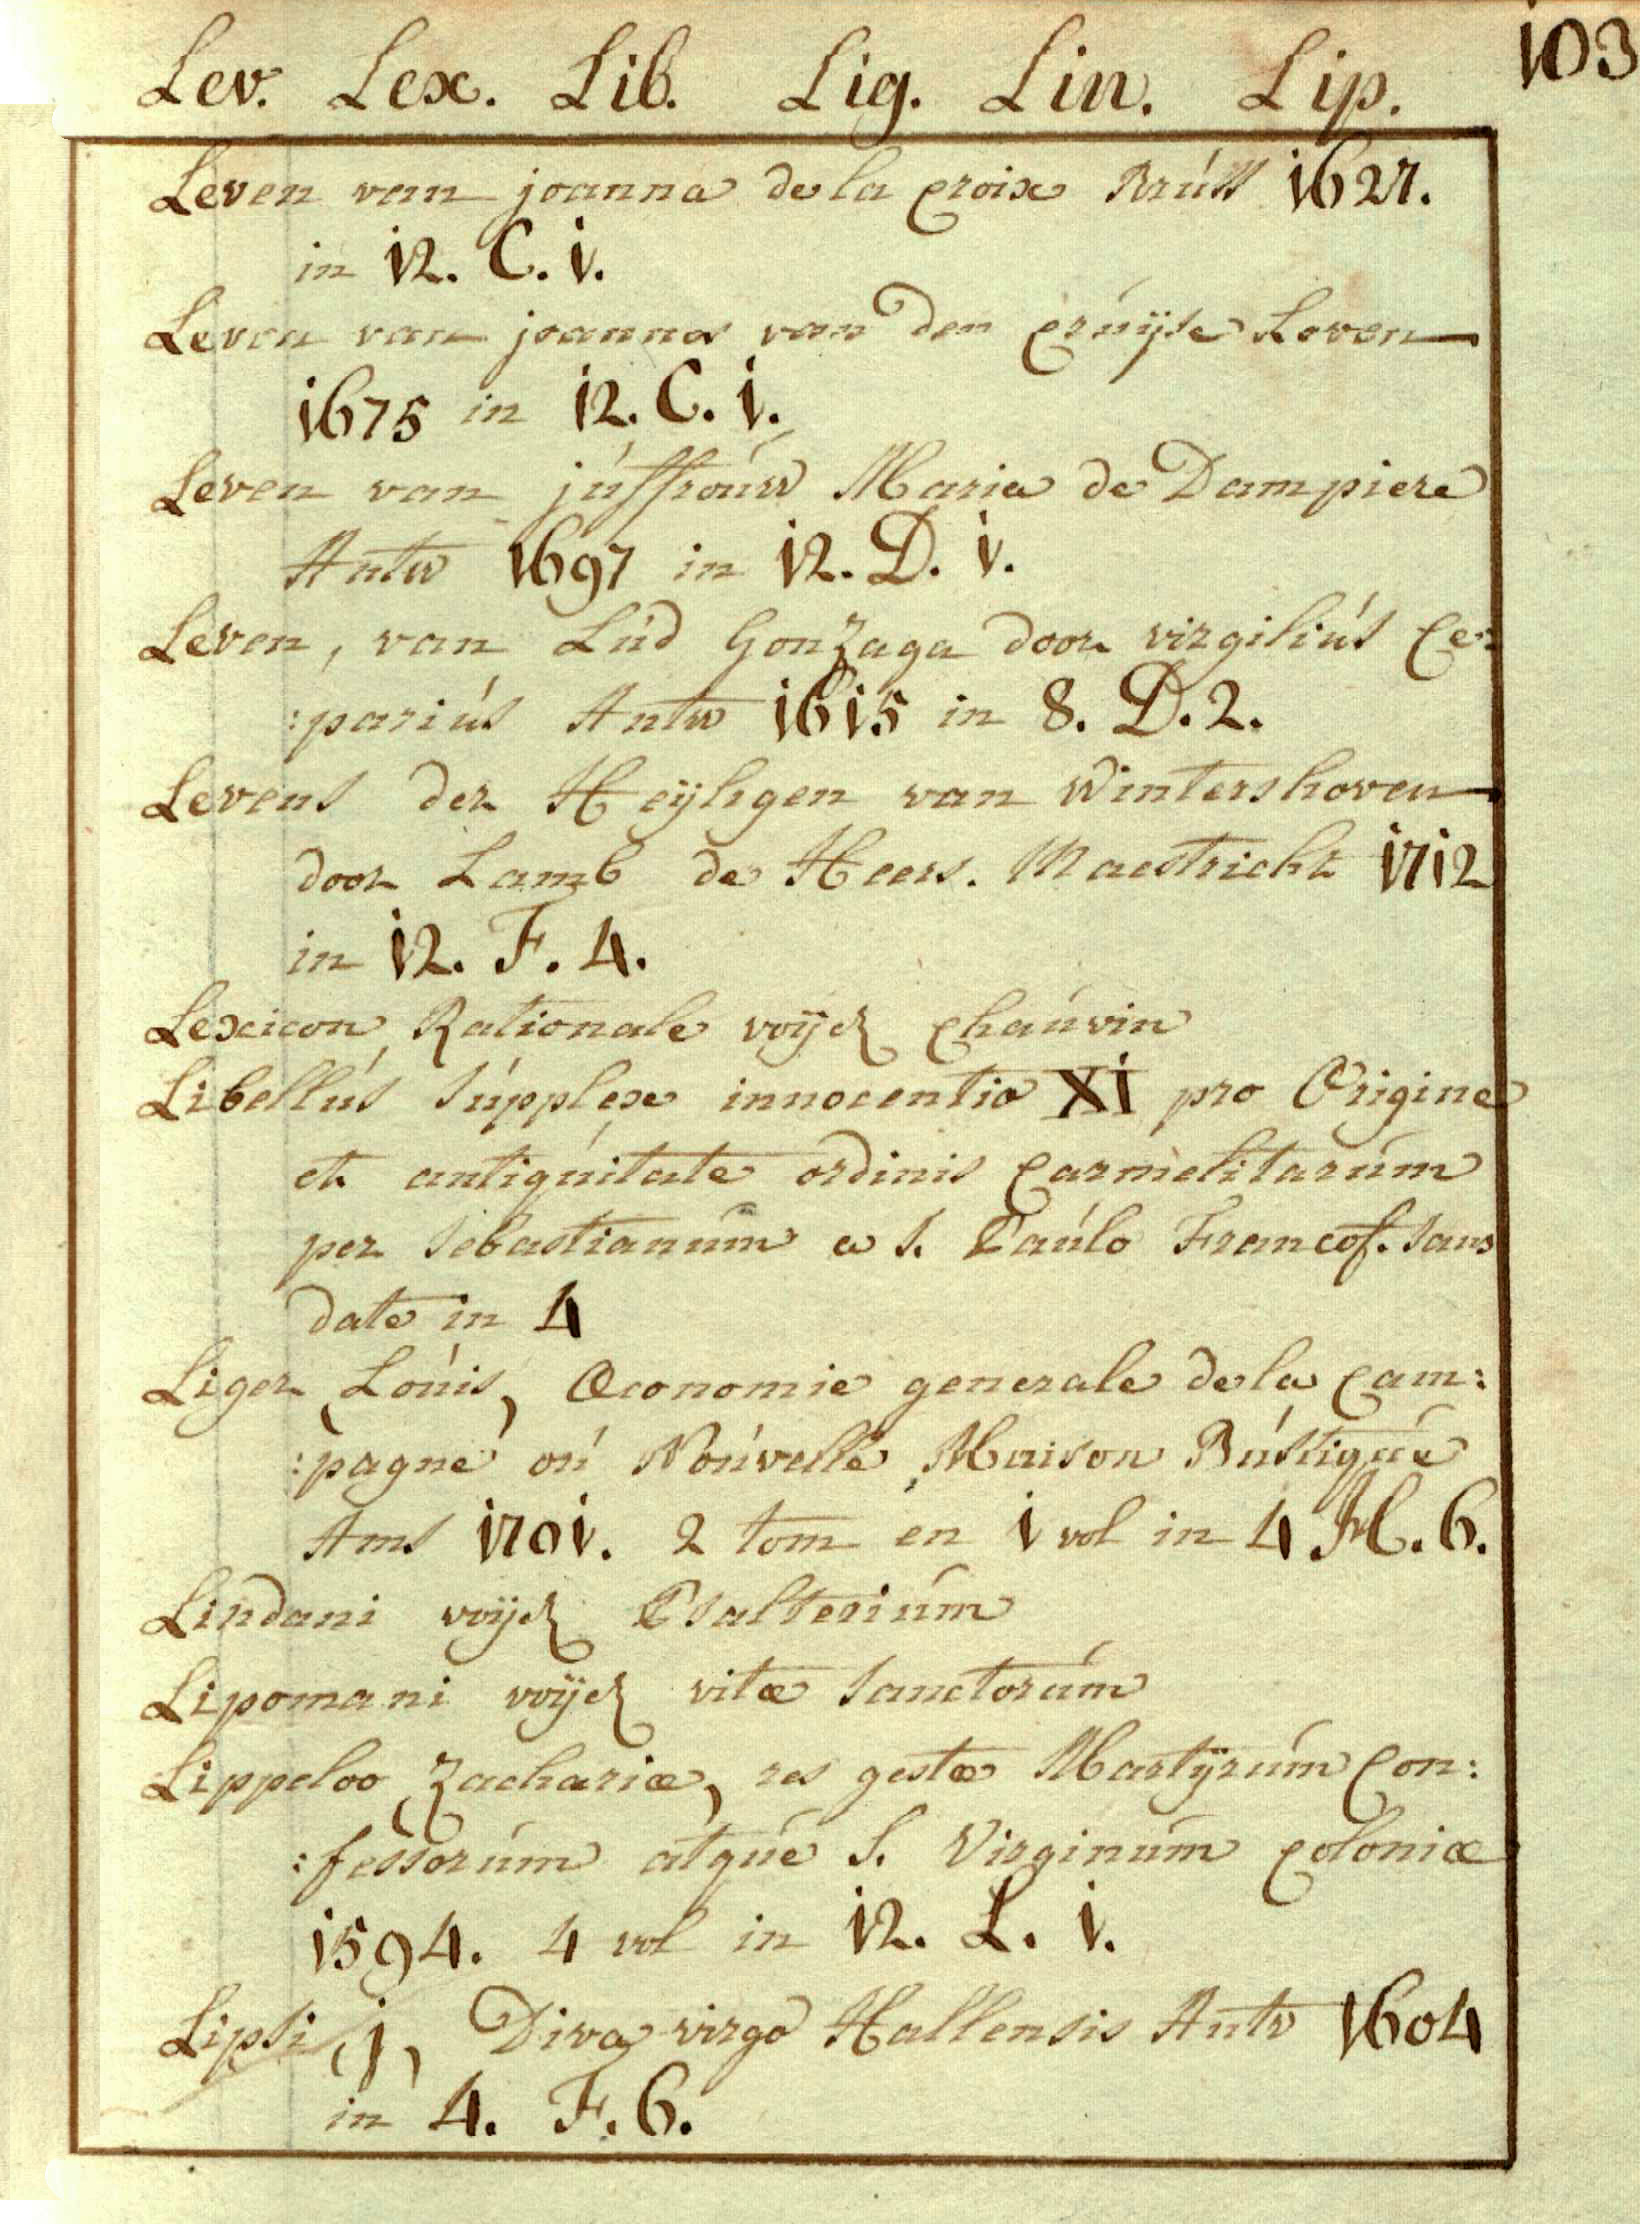 103
Lev. Lex. Lib. Lig. Lin. Lip.
Leven van joanna de la Croix Brúss 1627.
in 12. C. 1.
Leven van joannes van den Crúÿse Loven
1675 in 12. C. 1.
Leven van júffroúw Maria de Dampiere
Antw 1697 in 12. D. 1.
Leven, van Lúd Gonzaga door virgiliús Ce:
:pariús Antw 1615 in 8. D. 2.
Levens der Heÿligen van Wintershoven
door Lamb de Heers. Maestricht 1712
in 12. F. 4.
Lexicon Rationale voÿez Chaúvin
Libellús súpplex innocentio XI pro Origine
et antiqúitate ordinis Carmelitarúm
per Sebastianúm a S. Paúlo Francof. sans
date in 4
Liger (Loúis) Œconomie generale de la Cam:
:pagne oú Noúvelle Maison Rústiqúe
Ams 1701. 2 tom en 1 vol in 4 H. 6.
Lindani voÿez Psalteriúm
Lipomani voÿez vitæ Sanctorúm
Lippeloo (Zachariæ) res gestæ Martÿrúm Con:
:fessorúm atqúe S. Virginúm Coloniæ
1594. 4 vol in 12. L. 1.
Lipsi (j) Diva virgo Hallensis Antv 1604
in 4. F. 6.